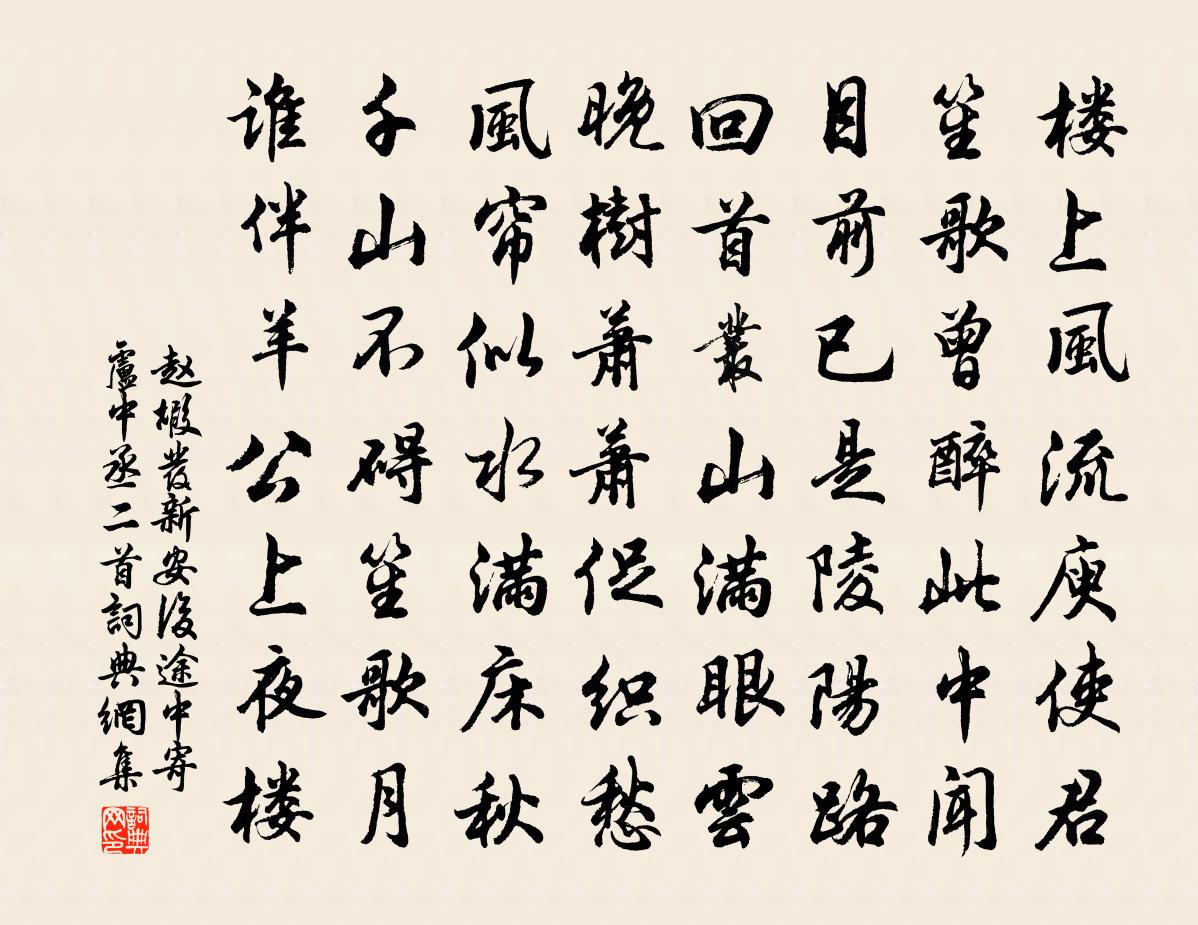 楼上風流庾使君
笙歌曾醉此中闻
目前已是陵陽路
回首叢山满眼雲
晚樹蕭蕭促织愁
風帘似水满床秋
千山不碍笙歌月
谁伴羊公上夜楼
赵嘏發新安後途中寄
盧中丞二首詞典網集
詞典
网印